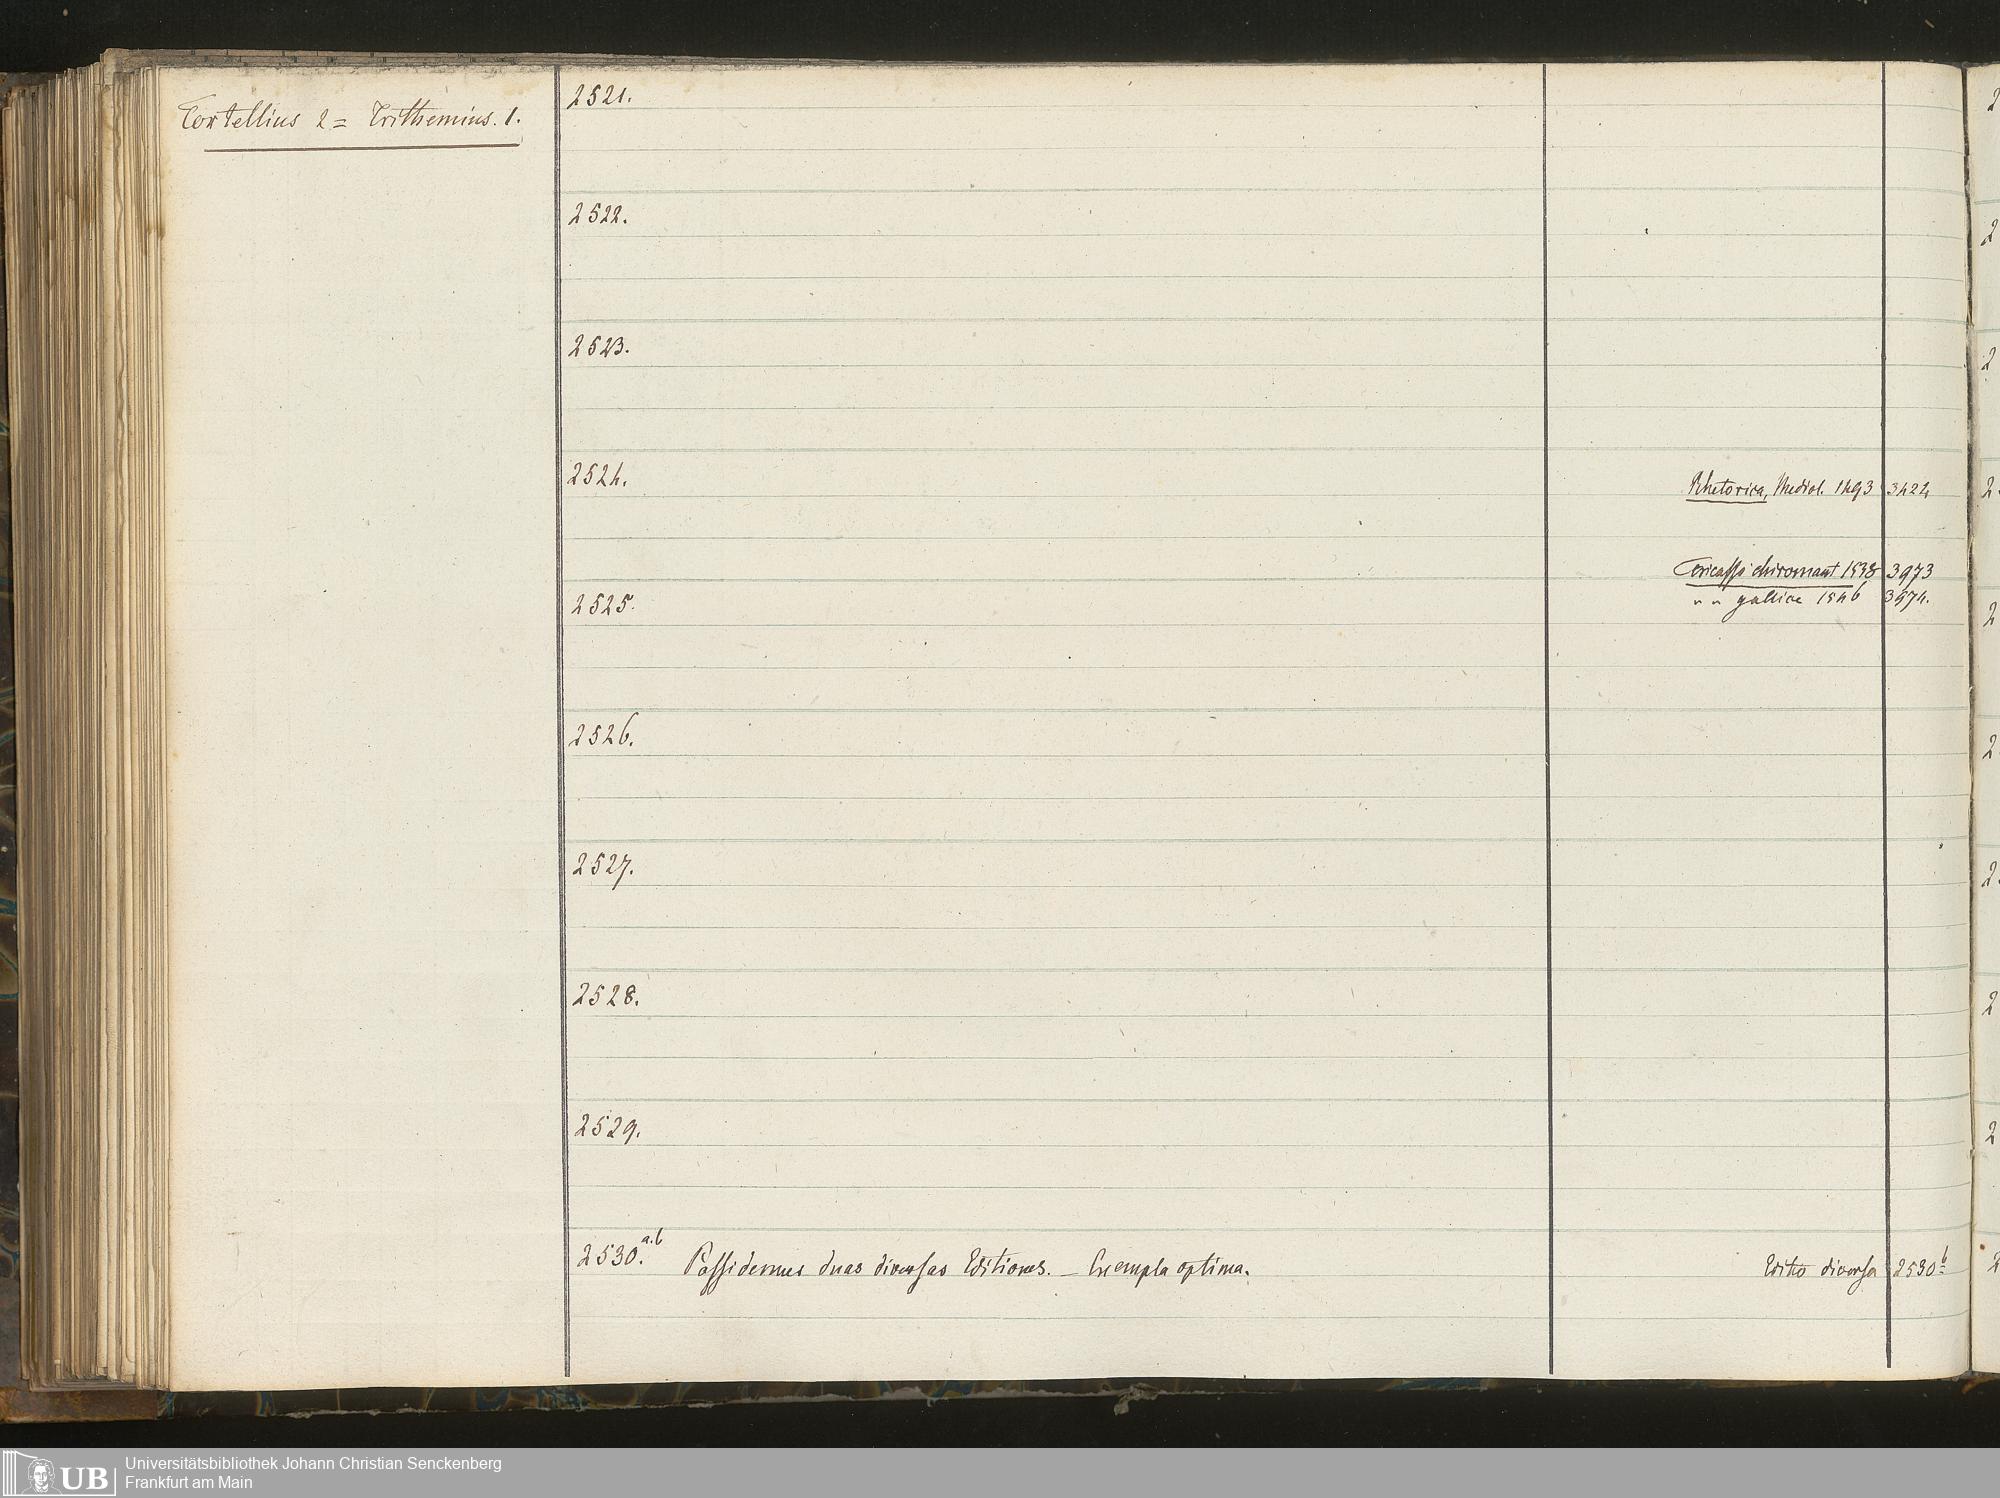 Tortellius 2 = Trithemius. 1.
2521.
2522.
2523.
2524.
Rhetorica, Mediol. 1493 3424
Tricasso chiromant 1538 3973
2525.
" " gallice 1546 3974.
2526.
2527.
2528.
2529.
2530. a.b Possidemus duas diversas Editiones. – Exempla optima.
Editio diversa 2530 b
UB
Universitätsbibliothek Johann Christian Senckenberg
Frankfurt am Main